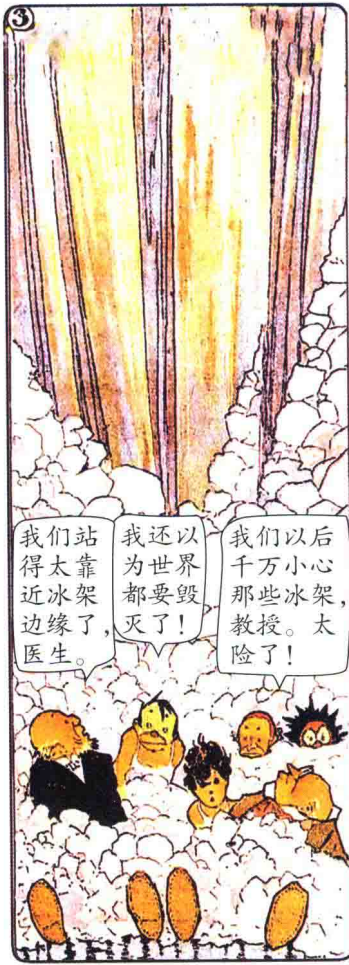 3
我们站
得太靠
近冰架
边缘了,
医生。
我还以
为世界
都要毁
灭了!
我们以后
千万小心
那些冰架,
教授。太
险了!